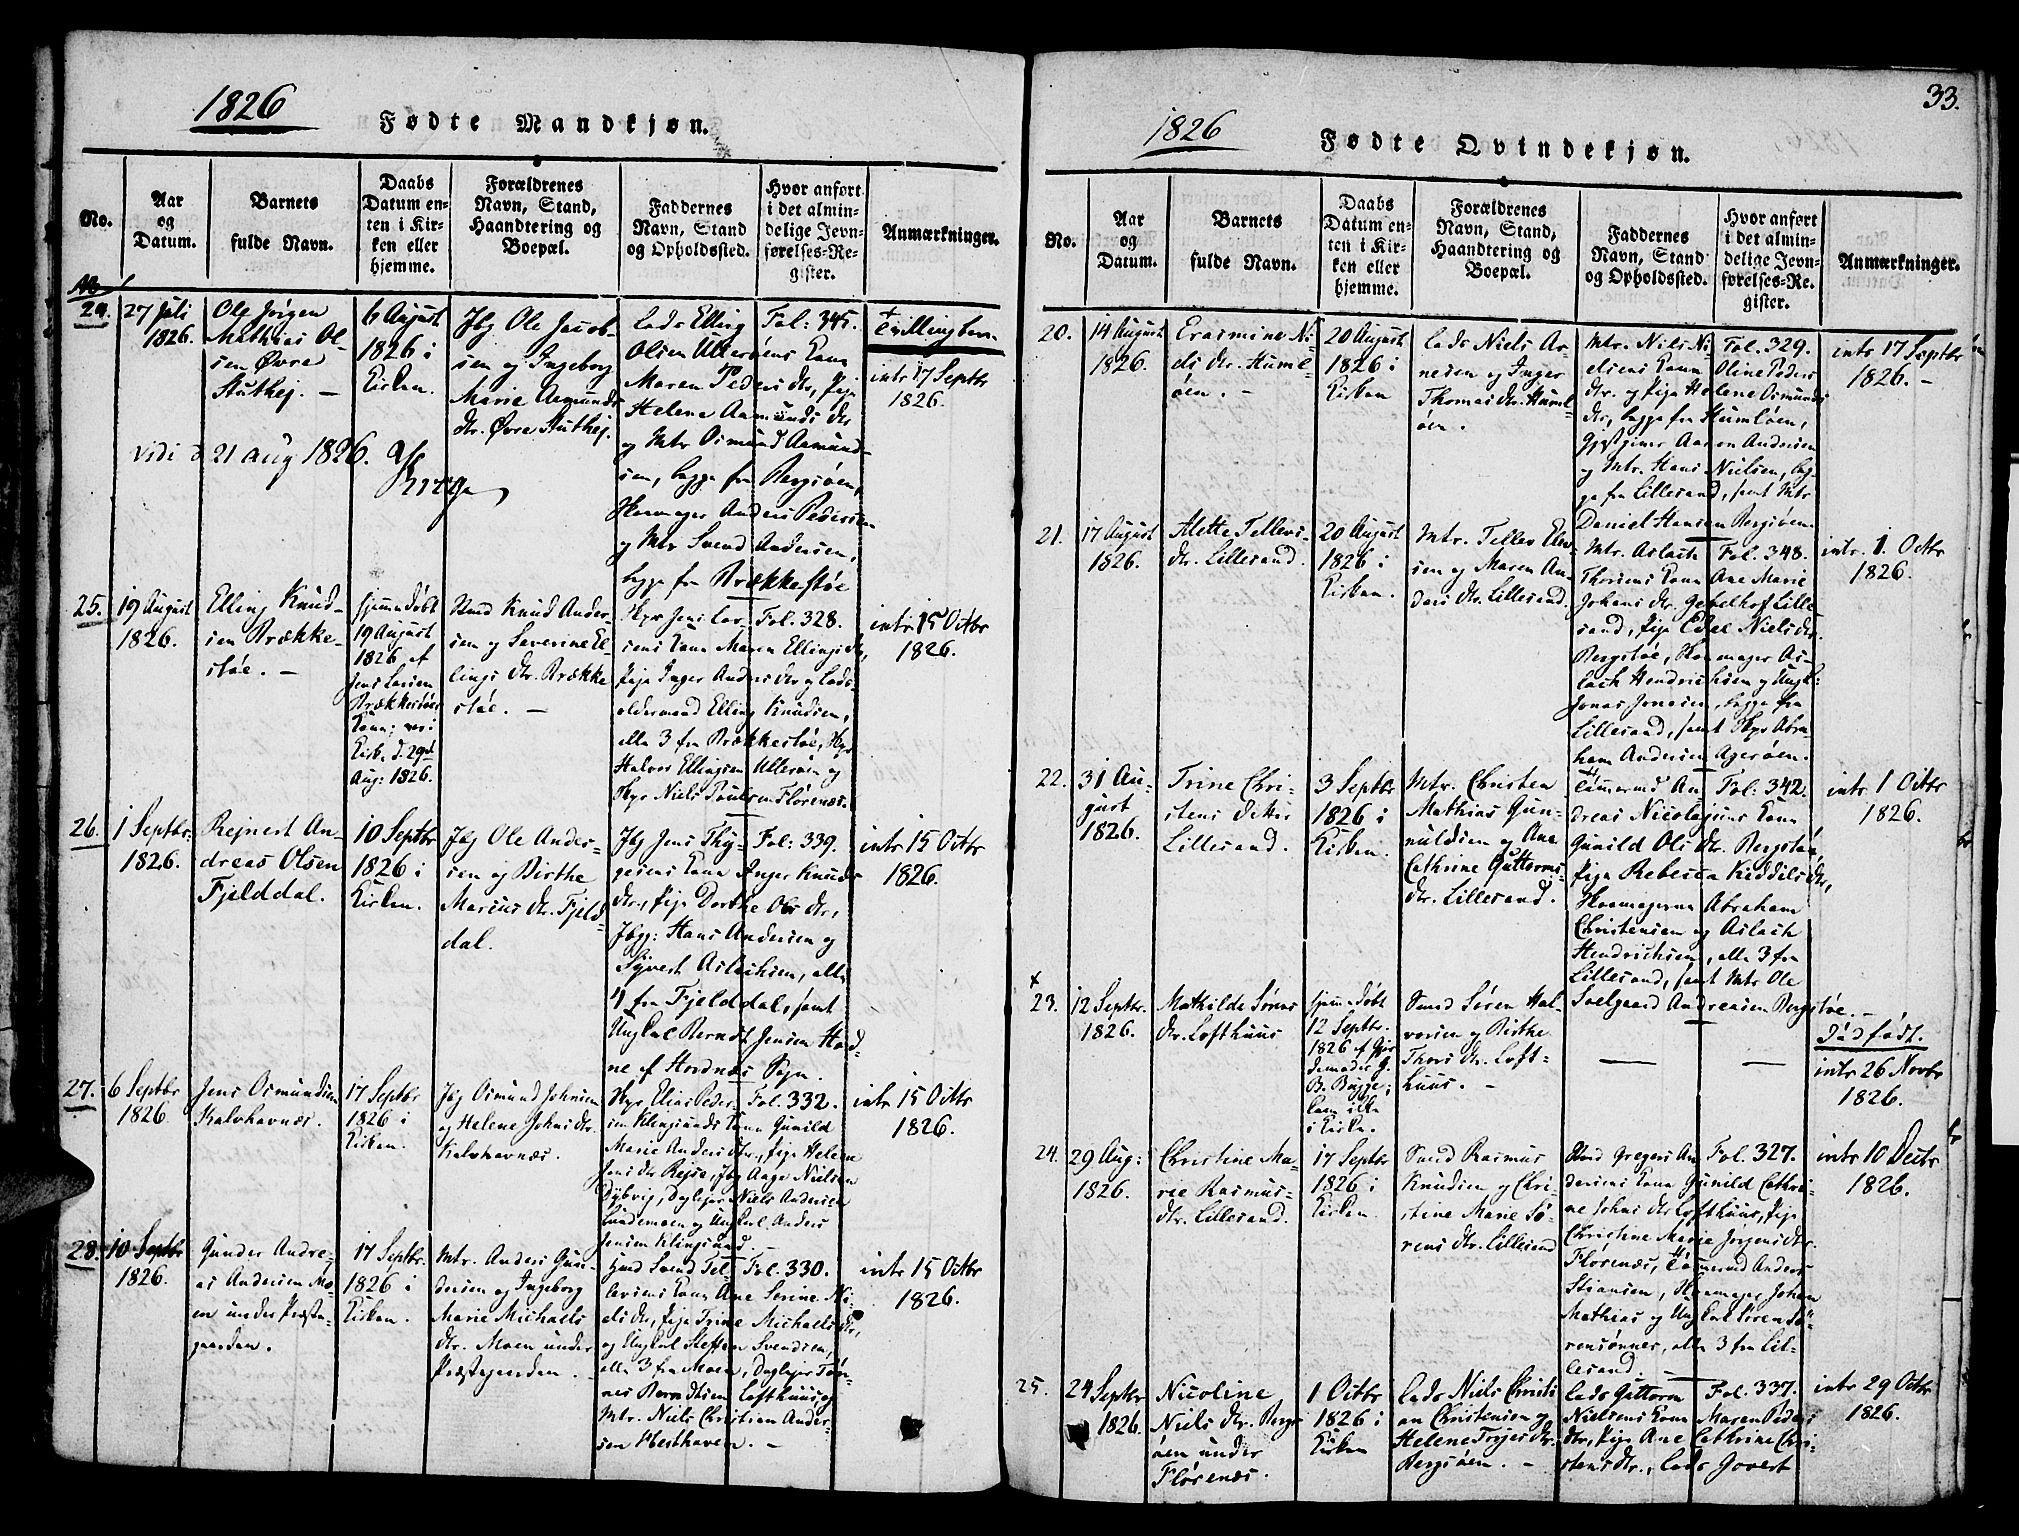 1826
Fødte Mandkjøn.
No.
Aar
og
Datum.
Barnets
fulde Navn.
Daabs
Datum en-
ten i Kir-
ken eller
hjemme.
Forældrenes
Navn, Stand,
Haandtering og
Boepæl.
Faddernes
Navn, Stand
og Opholdssted.
Hvor anført
i det almin-
delige Jevn-
førelses-Re-
gister.
Anmærkninger.
24.
27 Juli
1826.
Ole Jørgen
Mathias Ol-
sen Øvre
Stuthej. –
6 August
1826 i
Kirken.
Jbg Ole Jacob-
sen og Ingeborg
Marie Asmunds
dtr. Øvre Stuthej.
Lods Elling
Olsen Ulleröens Kone
Maren Peders dtr, Pige
Helene Asmunds dtr
og Mtr Osmund Asmund-
sen, begge fra Bergsöen,
Skomager Anders Pedersen
og Mtr Svend Andersen,
begge fra Brækkestöe
Fol: 345.
Tvillingbarn.
intr 17 Septbr
1826.
vidi d 21 aug 1826.
25.
19 August
1826.
Elling Knud-
sen Brække-
stöe. –
hjemmedöbt
19 August
1826 af
Jens Larsen
Brækkestöes
Kone; var i
Kirk. d. 29de
Aug: 1826.
Knud Ander-
sen og Severine El-
lings dtr. Brække
stöe. –
Skpr Jens Lar-
sens Kone Maren Ellings dtr,
Pige Inger Anders dtr og Lods-
oldermand Elling Knudsen,
alle 3 fra Brækkestöe, Skpr
Halvor Ellingsen Ulleröen og
Skpr Niels Poulsen Flörenæs.
Fol: 328.
intr 15 Octbr
1826.
26.
1 Septbr.
1826.
Rejnert An-
dreas Olsen
Fjelddal.
10 Septbr
1826 i
Kirken.
Jbg Ole Ander-
sen og Birthe
Marcus dtr. Fjeld
dal.
Jbg Jens Thy-
gesens Kone Inger Knuds
dtr., Pige Dorthe Ols dtr,
Jbgg: Hans Andersen og
Syvert Aslachsen, alle
4 fra Fjelddal, samt
Ungkarl Berndt Jensen Hød-
ne af Hordnæs Sogn.
Fol: 339.
intr 15 Octbr
1826.
27.
6 Septbr
1826.
Jens Osmundsen
Kalvhavnæs.
17 Septbr
1826 i
Kirken.
Jbg Osmund Johnsen
og Helene Johns dtr.
Kalvhavnæs.
Skpr Elias Peder-
sen Klingsunds Kone Gunild
Marie Anders dtr, Pige Helene
Jens dtr Rejsa, Jbg Aage Nielsen
Dybvig, Daglejer Niels Andersen
Lindemoen og Ungkarl Anders
Jensen Klingsund. –
Fol. 332.
intr 15 Octbr
1826.
28.
10 Septbr
1826.
Gunder Andre-
as Andersen Mo-
en under Præste-
gaarden.
17 Septbr.
1826 i
Kirken.
Mtr. Anders Gun-
dersen og Ingeborg
Marie Michaels
dtr. Moen under
Præstegaarden. –
Huusmd Svend Tel-
levsens Kone Ane Serine Ni-
els dtr, Pige Trine Michaels dtr,
og Ungkarl Steffen Svendsen,
alle 3 fra Moen, Daglejer Tön-
nes Berndtsen Lofthuus og
Mtr. Niels Christian Ander-
sen Westhaven. –
Fol. 330.
intr 15 Octbr
1826.
33.
1826
Fødte Qvindekjøn.
No.
Aar
og
Datum.
Barnets
fulde Navn.
Daabs
Datum en-
ten i Kir-
ken eller
hjemme.
Forældrenes
Navn, Stand,
Haandtering og
Boepæl.
Faddernes
Navn, Stand
og Opholdssted.
Hvor anført
i det almin-
delige Jevn-
førelses-Re-
gister.
Anmærkninger.
20.
14 August
1826.
Erasmine Ni-
els dtr. Huml-
öen. –
20 August
1826 i
Kirken
Lods Niels Ar-
nesen og Inger
Thomas dtr. Huml-
öen.
Mtr. Nils Ni-
elsens Kone Oline Peders
dtr, og Pige Helene Osmunds
dtr, begge fra Humlöen,
Gjestgiver Aanon Andersen
og Mtr. Hans Nielsen, beg-
ge fra Lillesand, samt Mtr
Daniel Hansen Bergsöen.
Fol. 329.
intr 17 Septbr
1826. –
21.
17 August
1826.
Alette Tellevs-
dtr. Lillesand.
20 August
1826 i
Kirken.
Mtr. Tellev Elev-
sen og Maren An-
ders dtr. Lillesand.
Mtr. Aslach
Thorsens Kone Ane Marie
Johans dtr. Lille-
sand, Pige Edel Niels dtr.
Bergstöe, Skomager As-
lach Hendrichsen og Ungk:
Jonas Jonasen, begge fra
Lillesand, samt Skpr Abra-
ham Andersen Ageröen.
Fol. 348.
intr. 1. Octbr
1826.
22.
31 Au-
gust
1826.
Trine Chri-
stens datter
Lillesand.
3 Septbr
1826 i
Kirken.
Mtr. Christen
Mathias Gun-
nuldsen og Ane
Cathrine Guttorms
dtr. Lillesand.
Tömmermd An-
dreas Nicolajsens Kone
Gunild Ols dtr. Bergstöe,
Pige Rebecca Kieddels dtr,
Skomagerne Abraham
Christensen og Aslach
Hendrichsen, alle 3 fra
Lillesand, samt Mtr Ole
Soelgaard Andreasen Bergstöe. –
Fol: 342.
intr 1 Octbr
1826.
23.
12 Septbr.
1826.
Mathilde Sörens
dtr. Lofthuus
hjemmedöbt
12 Septbr.
1826 af Gjor
demoder G.
B. Bugge;
kom ikke
i Kirken.
Svend Sören Hal-
vorsen og Birthe
Thors dtr. Loft-
huus. –
Dödfödt.
intr 26 Novbr
1826.
24.
29 Aug:
1826.
Christine Ma-
rie Rasmus-
dtr. Lillesand.
17 Septbr
1826 i
Kirken.
Rasmus
Knudsen og Chri-
stine Marie Sö-
rens dtr. Lillesand
Gregers An-
dersens Kone Gunild Cathri-
ne Johns dtr Lofthuus, Pige
Christine Marie Jörgens dtr.
Flörenæs, Tömmermd Anders
Stiansen, Skomager Johan
Mathias og Ungkarl Sören Sö-
rensönner, alle 3 fra Lil-
lesand.
Fol. 327.
intr 10 Decbr
1826.
25.
24 Septbr
1826.
Nicoline
Niels dtr. Bergs
öen under
Flörenæs.
1 Octbr
1826 i
Kirken
Lods Niels Christi-
an Christensen og
Helene Terjes dtr.
Bergsöen. –
Lods Guttorm
Nielsens Kone Maren Peders
dtr, Pige Ane Cathrine Chri-
stens dtr., Lods Govert
Fol. 337.
intr 29 Octbr
1826.